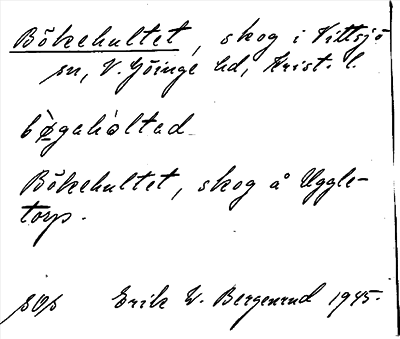 Bökehultet, skog i Vittsjö
sn, V. Göinge hd, Krist. l.
bø̀gahòltad
Bökehultet, skog å Uggle-
torp.
sOs Erik W. Bergenrud 1945.